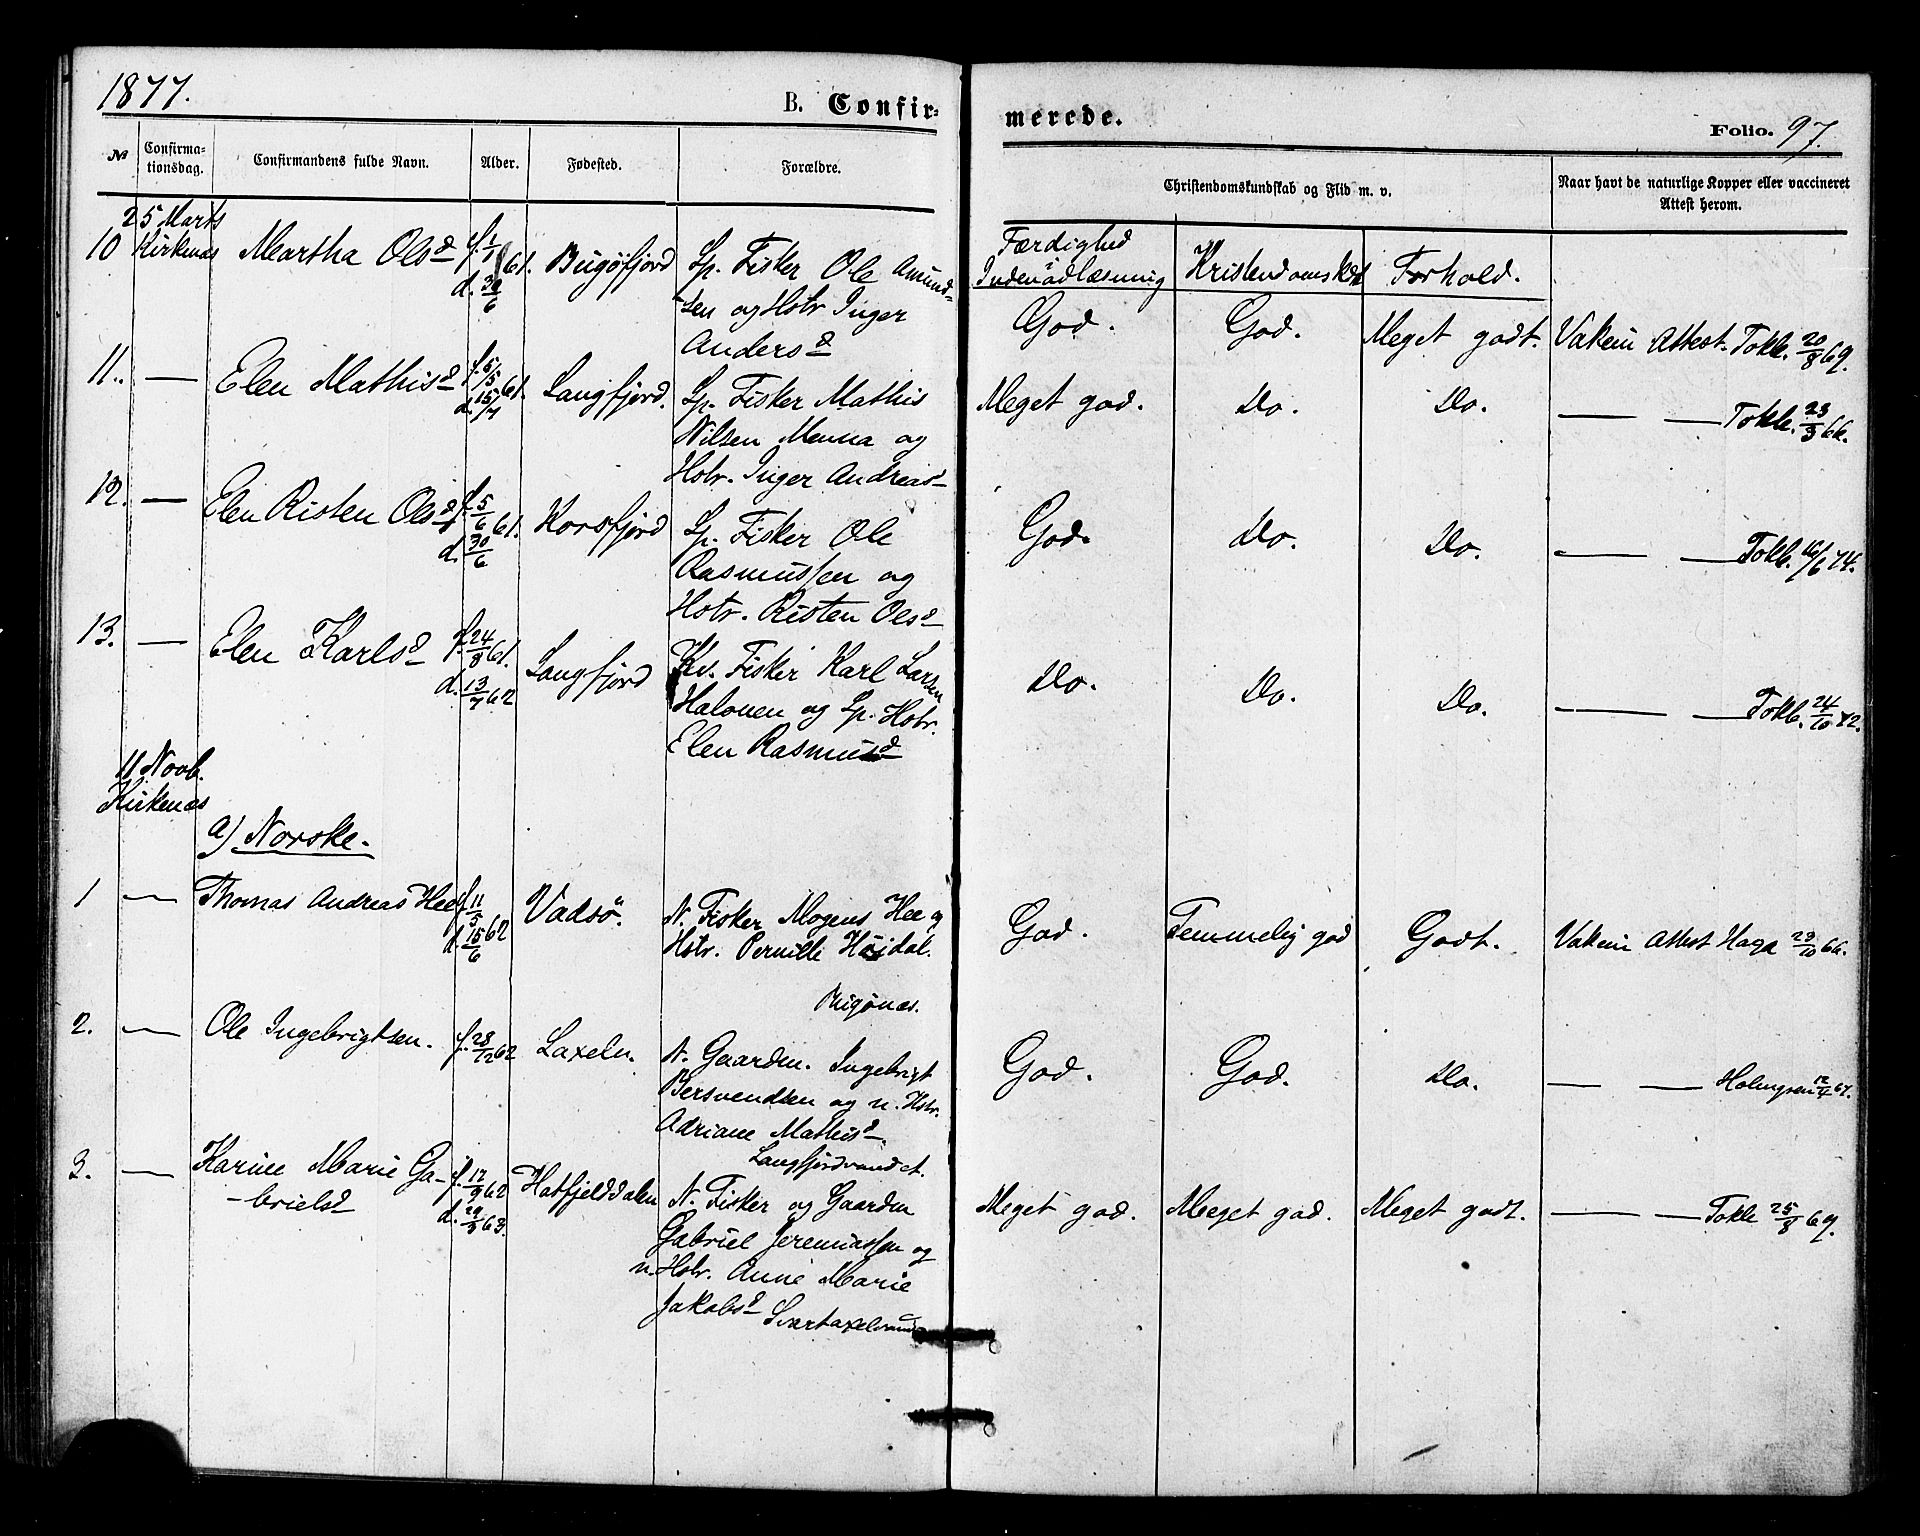 1877.
B. Confirmerede.
Folio. 97.
№ Confirmationsdag. Confirmandens fulde Navn. Alder. Fødested. Forældre. Christendomskundskab og Flid m. v. Naar havt de naturlige Kopper eller vaccineret Attest herom.
25 Marts
Kirkenæs
Færdighed i Indenadlæsning Kristendomsksk Forhold.
10 Martha Olsd f. 1/1 61. d. 30/6 Bugöfjord
Sp. Fisker Ole Amund-
sen og Hstr Inger
Andersd
God. God. Meget godt. Vakcin Attest Tokle. 20/8 69.
11. — Elen Mathisd f. 5/5 61. d. 15/7 Langfjord.
Sp. Fisker Mathis
Nilsen Menna og
Hstr. Inger Andreas-
Meget god. Do. Do. — — Tokle. 23/3 66.
12. — Elen Risten Olsd f. 5/6 61. d. 30/6 Korsfjord
Sp. Fisker Ole
Rasmussen og
Hstr. Risten Olsd
God. Do. Do. — — Tokle. 16/6 74.
13. — Elen Karlsd f. 24/8 61. d. 13/7 62 Langfjord
Kv. Fisker Karl Larsen
Halonen og Sp. Hstr.
Elen Rasmusd
Do. Do. Do. — — Tokle. 24/10 72.
11 Novb.
Kirkenæs
a) Norske.
1 — Thomas Andreas Hee f. 11/5 62 d. 15/6 Vadsö.
N. Fisker Mogens Hee og
Hstr. Pernille Höjdal.
Bugönæs.
God. Temmelig god Godt. Vakcin Attest Haga 23/10 66.
2. — Ole Ingebrigtsen. f. 28/12 62 Laxelv.
N. Gaardm. Ingebrigt
Bersvendsen og n. Hstr.
Adriane Mathisd.
Langfjordvandet.
God. God. Do. — — 12/4 67.
3. — Karine Marie Ga-
brielsd f. 12/9 62 d. 29/3 63. Hatfjelddalen
N. Fisker og Gaardm
Gabriel Jeremiassen og
n. Hstr. Anne Marie
Jakobsd
Meget god. Meget god. Meget godt. — — Tokle 25/8 69.